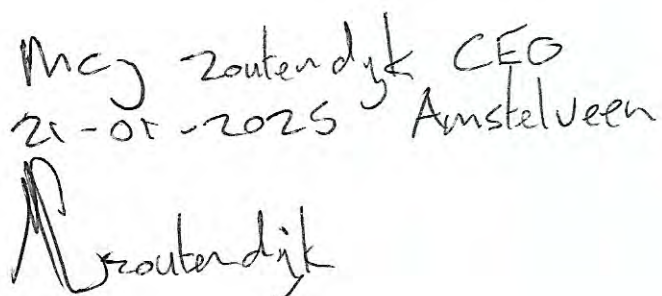 MCJ Zoutendijk CEO
21-01-2025 Amstelveen
Zoutendijk